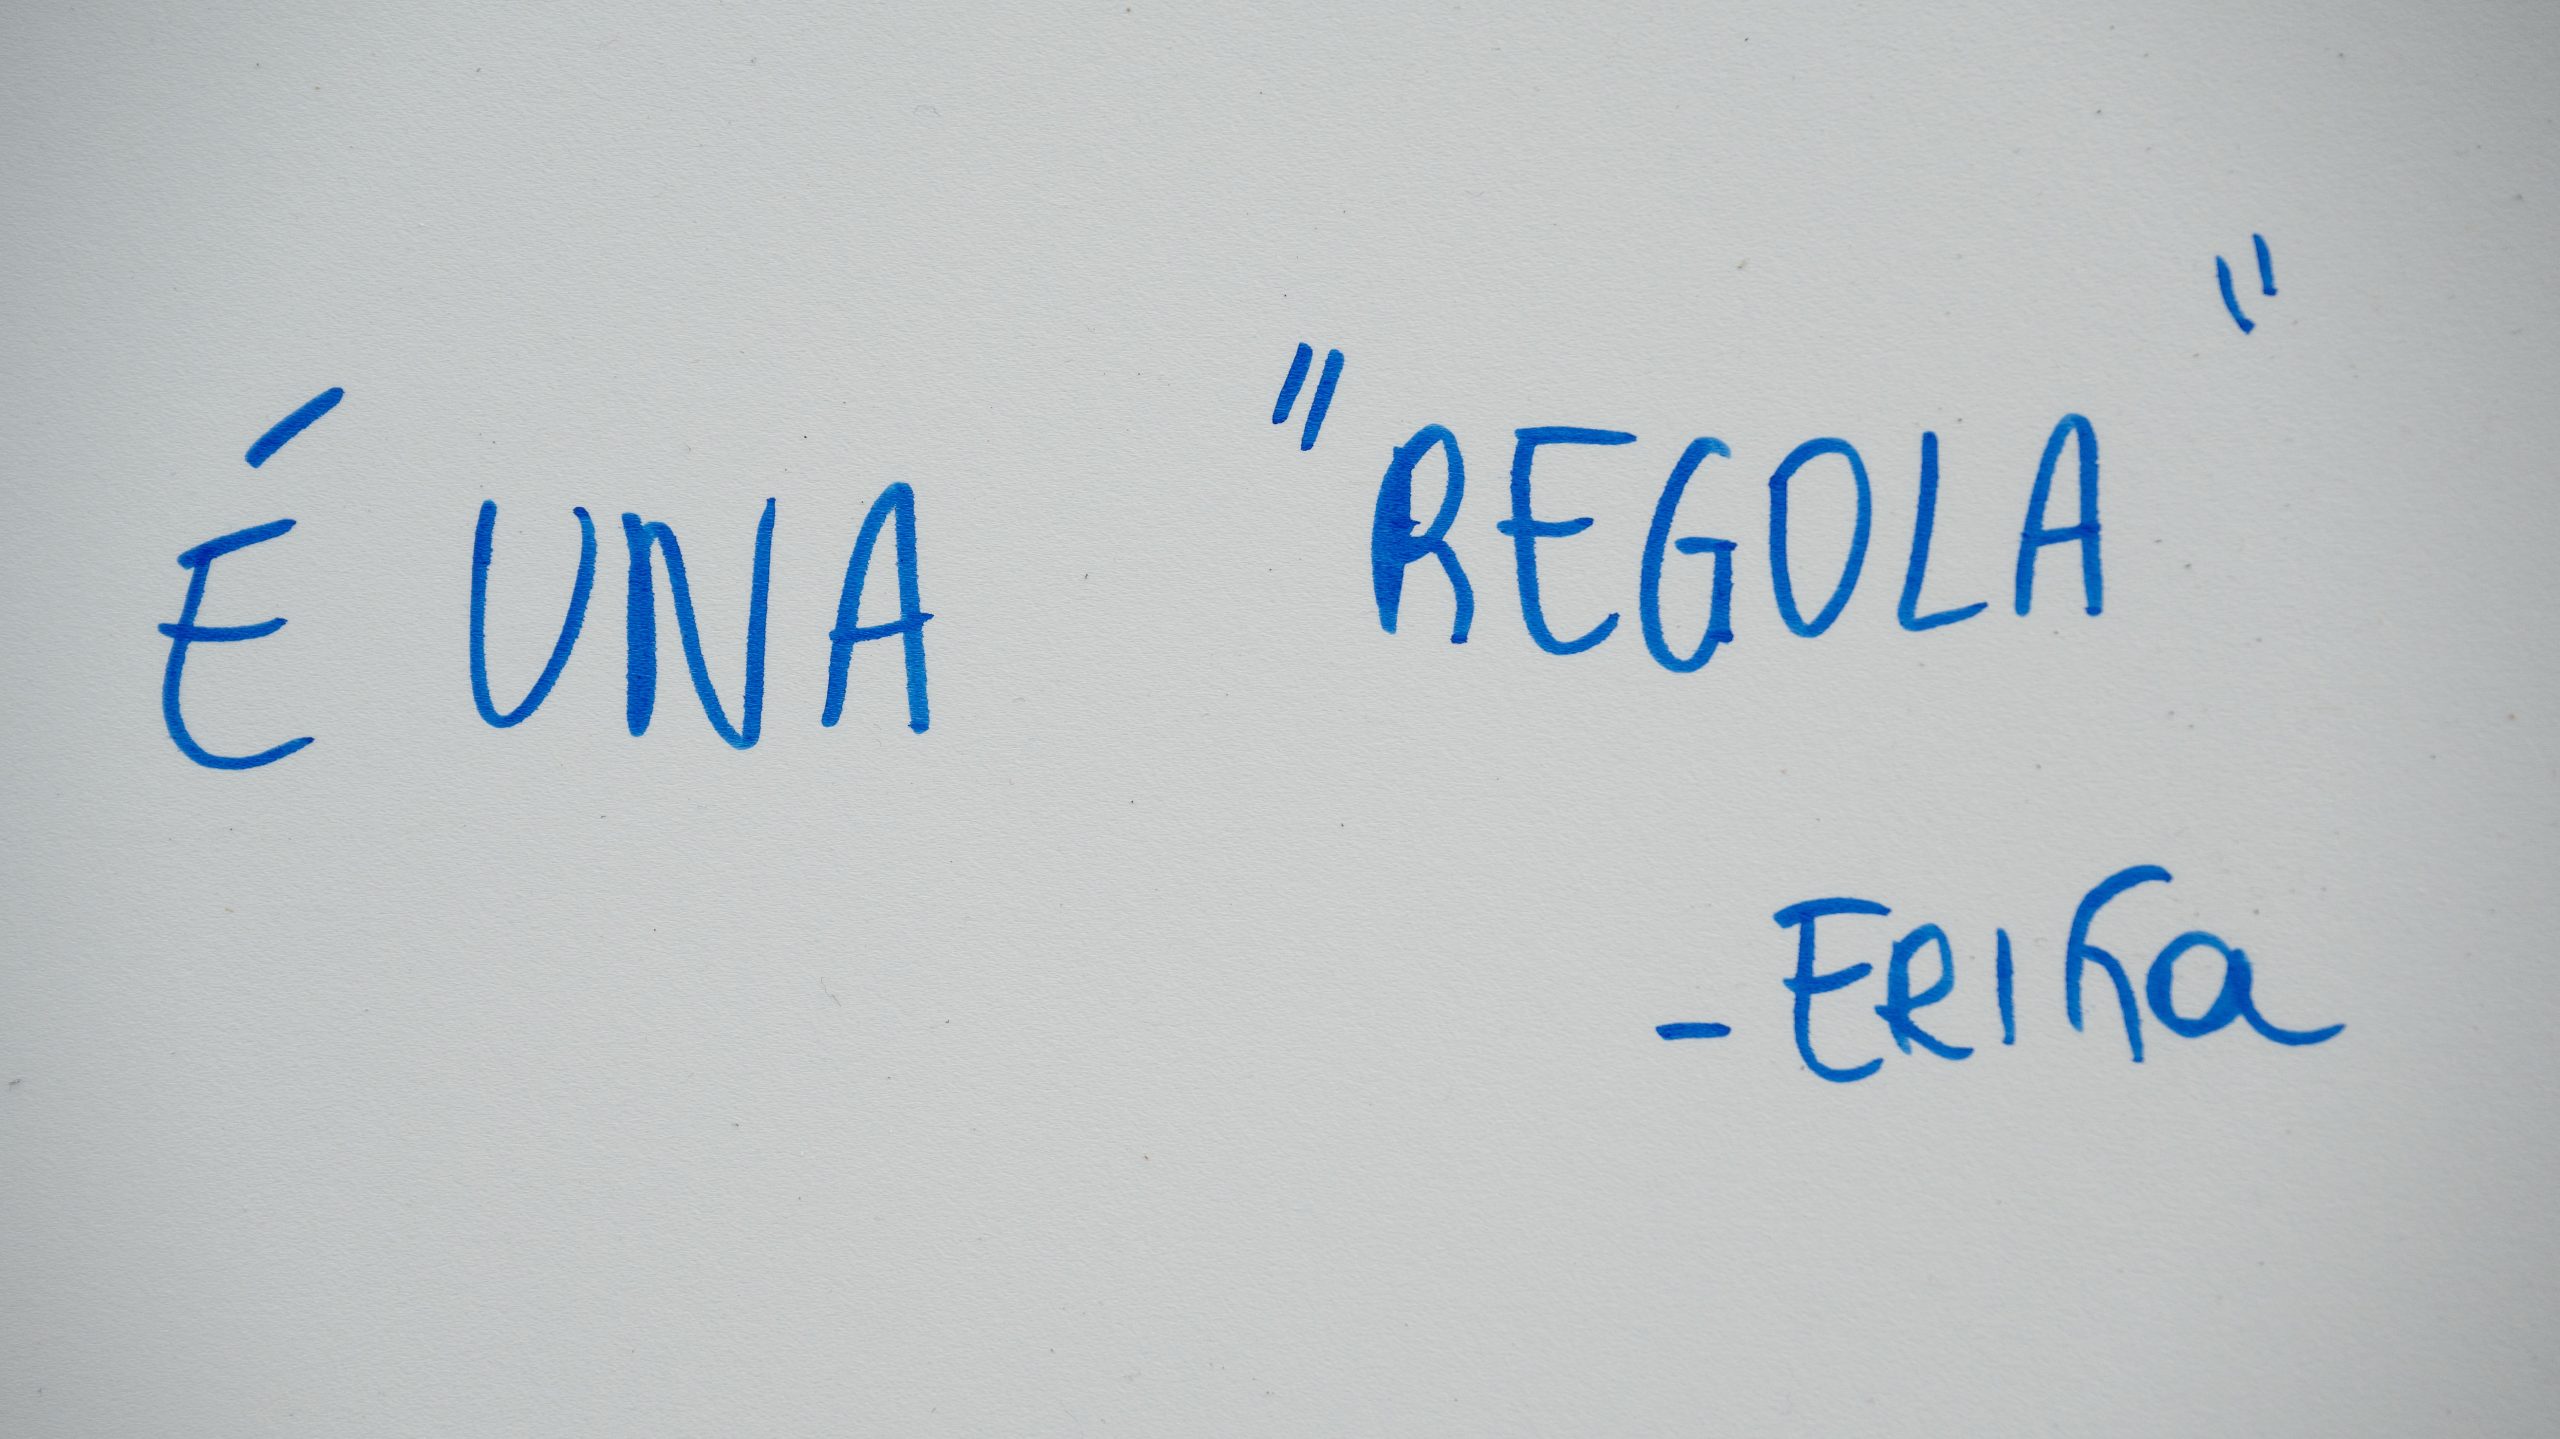 É UNA "REGOLA"
- ERIKa